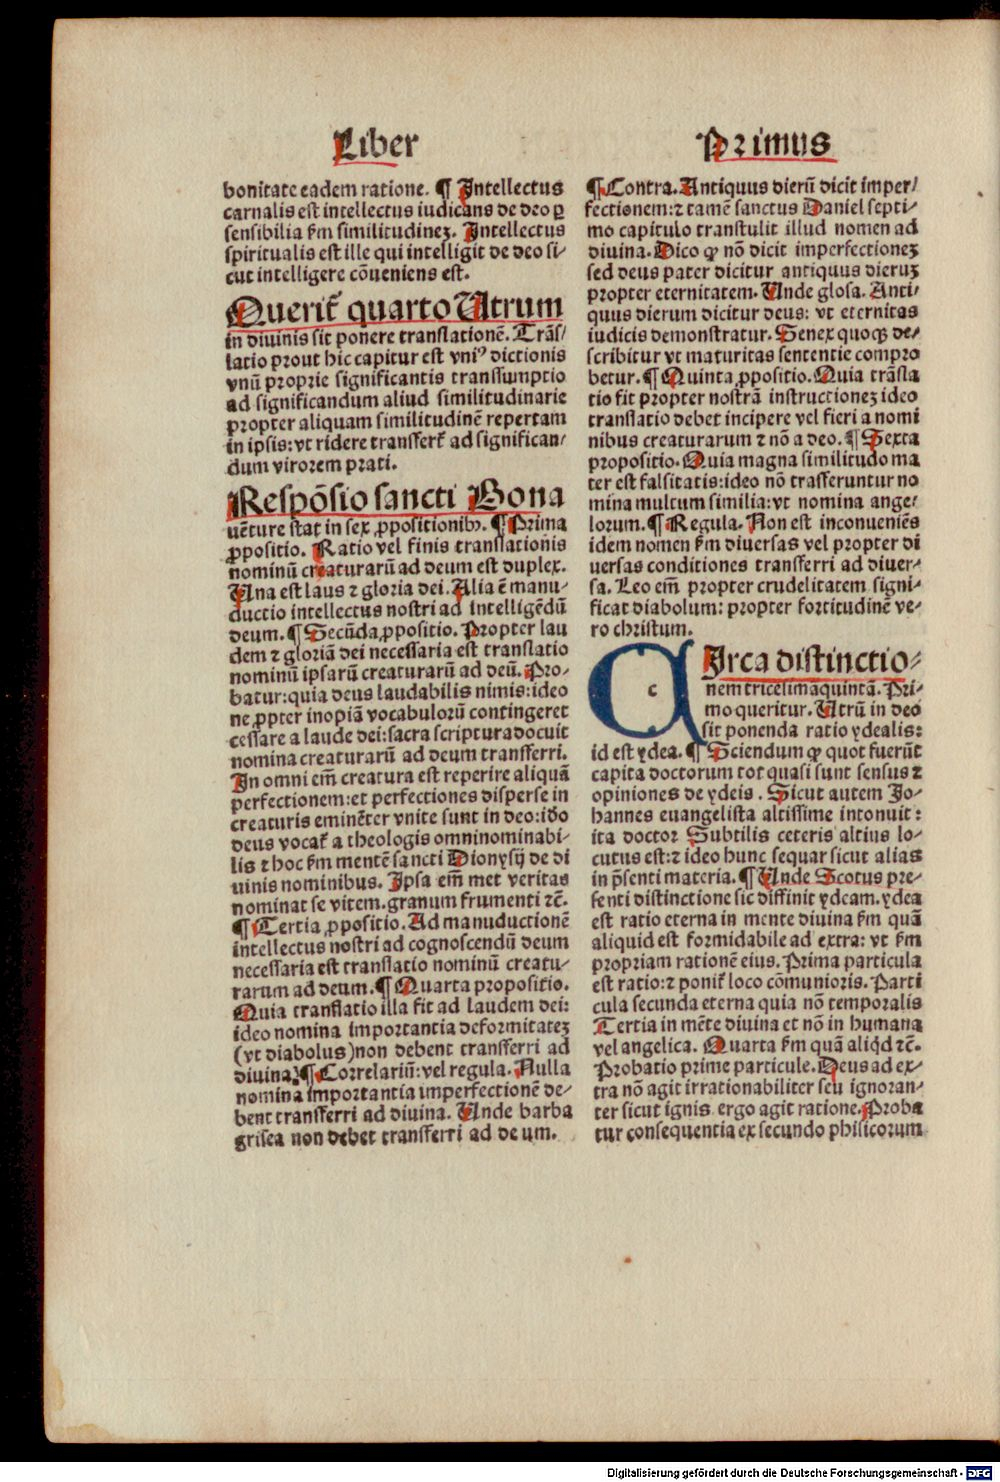 Liber
Primus
bonitate eadem ratione. ¶ Intellectus
carnalis est intellectus iudicans de deo ꝑ
sensibilia ẜm similitudinez. Intellectus
spiritualis est ille qui intelligit de deo si-
cut intelligere cōueniens est.
Querit᷑ quarto Utrum
in diuinis sit ponere translationē. Trās/
latio prout hic capitur est vniꝰ dictionis
vnū proprie significantis transsumptio
ad significandum aliud similitudinarie
propter aliquam similitudinē repertam
in ipsis: vt ridere transfert᷑ ad significan/
dum virorem prati.
Respōsio sancti Bona
uēture stat in sex ꝓpositionibꝰ. ¶ Prima
ꝓpositio. Ratio vel finis translationis
nominū creaturarū ad deum est duplex.
Una est laus ⁊ gloria dei. Alia ē manu-
ductio intellectus nostri ad intelligēdū
deum. ¶ Secūda ꝓpositio. Propter lau
dem ⁊ gloriā dei necessaria est translatio
nominū ipsarū creaturarū ad deū. Pro-
batur: quia deus laudabilis nimis: ideo
ne ꝓpter inopiā vocabulorū contingeret
cessare a laude dei: sacra scriptura docuit
nomina creaturarū ad deum transferri.
In omni em̄ creatura est reperire aliquā
perfectionem: et perfectiones disperse in
creaturis eminēter vnite sunt in deo: iđo
deus vocat᷑ a theologis omninominabi-
lis ⁊ hoc ẜm mentē sancti Dionysij de di
uinis nominibus. Ipsa em̄ met veritas
nominat se vitem. granum frumenti ⁊c̄.
¶ Tertia ꝓpositio. Ad manuductionē
intellectus nostri ad cognoscendū deum
necessaria est translatio nominū creatu-
rarum ad deum. ¶ Quarta propositio.
Quia translatio illa fit ad laudem dei:
ideo nomina importantia deformitatez
(vt diabolus) non debent transferri ad
diuina. ¶ Correlariū: vel regula. Nulla
nomina importantia imperfectionē de-
bent transferri ad diuina. Unde barba
grisea non debet transferri ad deum.
¶ Contra. Antiquus dierū dicit imper/
fectionem: ⁊ tamē sanctus Daniel septi-
mo capitulo transtulit illud nomen ad
diuina. Dico ꝙ nō dicit imperfectionez
sed deus pater dicitur antiquus dieruz
propter eternitatem. Unde glosa. Anti-
quus dierum dicitur deus: vt eternitas
iudicis demonstratur. Senex quoqꝫ de-
scribitur vt maturitas sententie compro
betur. ¶ Quinta ꝓpositio. Quia trāsla
tio fit propter nostrā instructionez ideo
translatio debet incipere vel fieri a nomi
nibus creaturarum ⁊ nō a deo. ¶ Sexta
propositio. Quia magna similitudo ma
ter est falsitatis: ideo nō trāsferuntur no
mina multum similia: vt nomina ange-
lorum. ¶ Regula. Non est inconueniēs
idem nomen ẜm diuersas vel propter di
uersas conditiones transferri ad diuer-
sa. Leo em̄ propter crudelitatem signi-
ficat diabolum: propter fortitudinē ve-
ro christum.
c Irca distinctio-
nem tricesimaquintā. Pri-
mo queritur. Utrū in deo
sit ponenda ratio ydealis:
id est ydea. ¶ Sciendum ꝙ quot fuerūt
capita doctorum tot quasi sunt sensus ⁊
opiniones de ydeis. Sicut autem Jo-
hannes euangelista altissime intonuit:
ita doctor Subtilis ceteris altius lo-
cutus est: ⁊ ideo hunc sequar sicut alias
in p̄senti materia. ¶ Unde Scotus pre-
senti distinctione sic diffinit ydeam. ydea
est ratio eterna in mente diuina ẜm quā
aliquid est formidabile ad extra: vt ẜm
propriam rationē eius. Prima particula
est ratio: ⁊ ponit᷑ loco cōmunioris. Parti
cula secunda eterna quia nō temporalis
Tertia in mēte diuina et nō in humana
vel angelica. Quarta ẜm quā aliqd̓ ⁊c̄.
Probatio prime particule. Deus ad ex-
tra nō agit irrationabiliter seu ignoran-
ter sicut ignis ergo agit ratione. Proba
tur consequentia ex secundo phisicorum
Digitalisierung gefördert durch die Deutsche Forschungsgemeinschaft - DFG